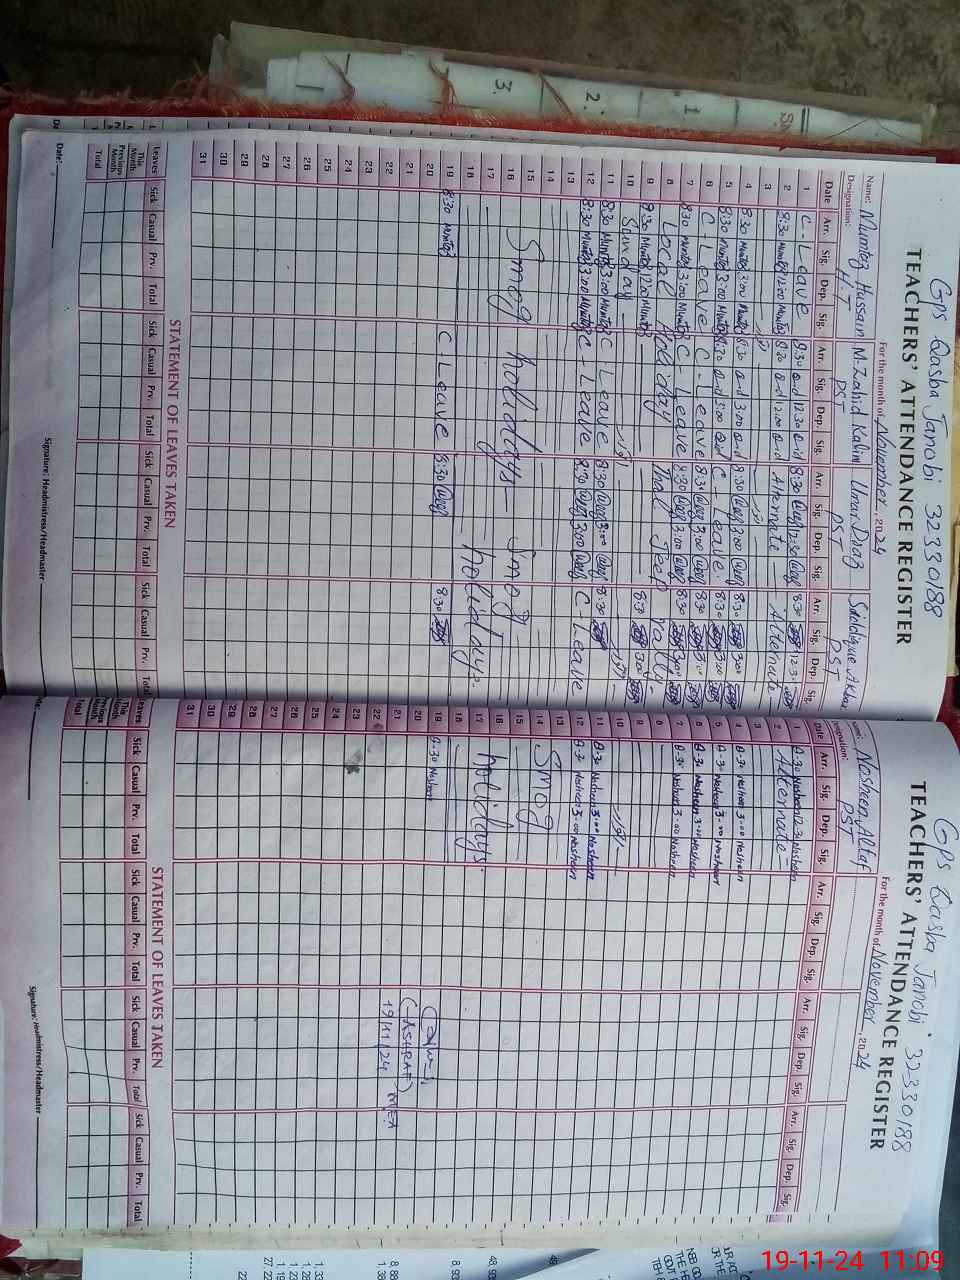 GPS Qasba Janobi 32330188
TEACHERS' ATTENDANCE REGISTER
For the month of November, 2024
Name: Mumtaz Hussain M. Zahid Kalim Umar Draz Siddique Akbar
Designation: H.T PST PST PST
Date Arr. Sig. Dep. Sig. Arr. Sig. Dep. Sig. Arr. Sig. Dep. Sig. Arr. Sig. Dep. Sig.
1 C-Leave 8:30 12:30 8:30 12:30 8:30 12:3
2 8:30 Mumtaz 12:00 Mumtaz 8:30 12:00 Alternate Alternate
3
4 8:30 Mumtaz 3:00 Mumtaz 8:30 3:00 8:30 3:00 8:30 3:00
5 8:30 Mumtaz 3:00 Mumtaz 8:30 3:00 C-Leave. 8:30 3:00
6 C-Leave C-Leave 8:30 3:00 8:30 3:00
7 8:30 Mumtaz 3:00 Mumtaz C-Leave 8:30 3:00 8:30 3:00
8 Local Holiday Thal Jeep Rally-
9 8:30 Mumtaz 12:00 Mumtaz 8:30 3:00
10 Sunday
11 8:30 Mumtaz 3:00 Mumtaz C Leave 8:30 3:00 8:30
12 8:30 Mumtaz 3:00 Mumtaz C-Leave 8:30 3:00 C Leave
13
14
15
16 Smog holidays- Smog
17
18 holidays.
19 8:30 Mumtaz C-Leave 8:30 8:30
20
21
22
23
24
25
26
27
28
29
30
31
STATEMENT OF LEAVES TAKEN
Leaves Sick Casual Prv. Total Sick Casual Prv. Total Sick Casual Prv. Total Sick Casual Prv. Total
This Month
Previous Month
Total
Date: Signature: Headmistress/Headmaster
GPS Qasba Janobi 32330188
TEACHERS' ATTENDANCE REGISTER
For the month of November, 2024
Name: Nosheen Altaf
Designation: PST
Date Arr. Sig. Dep. Sig. Arr. Sig. Dep. Sig. Arr. Sig. Dep. Sig. Arr. Sig. Dep. Sig.
1 8:30 Nosheen 12:30 Nosheen
2 Alternate-
3
4 8:30 Nosheen 3:00 Nosheen
5 8:30 Nosheen 3:00 Nosheen
6 8:30 Nosheen 3:00 Nosheen
7 8:30 Nosheen 3:00 Nosheen
8
9
10
11 8:30 Nosheen 3:00 Nosheen
12 8:30 Nosheen 3:00 Nosheen
13
14 Smog
15
16
17 holidays.
18
19 8:30 Nosheen
20
21 (ASHRAF) MEA
22 19/11/24
23
24
25
26
27
28
29
30
31
STATEMENT OF LEAVES TAKEN
Leaves Sick Casual Prv. Total Sick Casual Prv. Total Sick Casual Prv. Total Sick Casual Prv. Total
This Month
Previous Month
Total
Signature: Headmistress/Headmaster
1
2.
3.
19-11-24 11:09